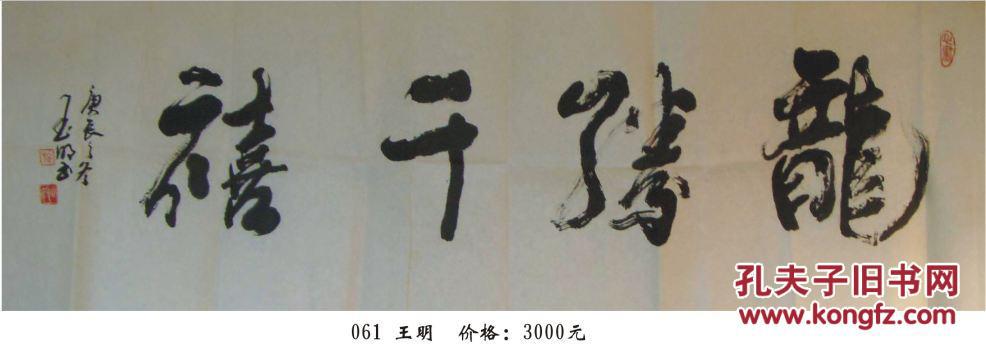 龍騰千禧
庚辰之冬
孔夫子旧书网
www.kongfz.com
061 王明 价格：3000元